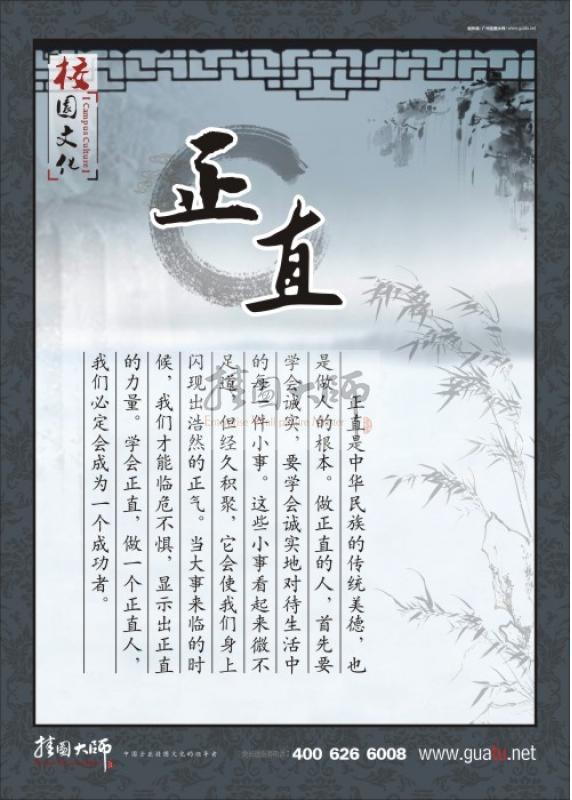 校园文化
【Campus Culture】
正直
正直是中华民族的传统美德，也
是做人的根本。做正直的人，首先要
学会诚实，要学会诚实地对待生活中
的每一件小事。这些小事看起来微不
足道，但经久积聚，它会使我们身上
闪现出浩然的正气。当大事来临的时
候，我们才能临危不惧，显示出正直
的力量。学会正直，做一个正直人，
我们必定会成为一个成功者。
挂图大师
挂图大师
中国企业挂图文化的领导者
400 626 6008
www.guatu.net